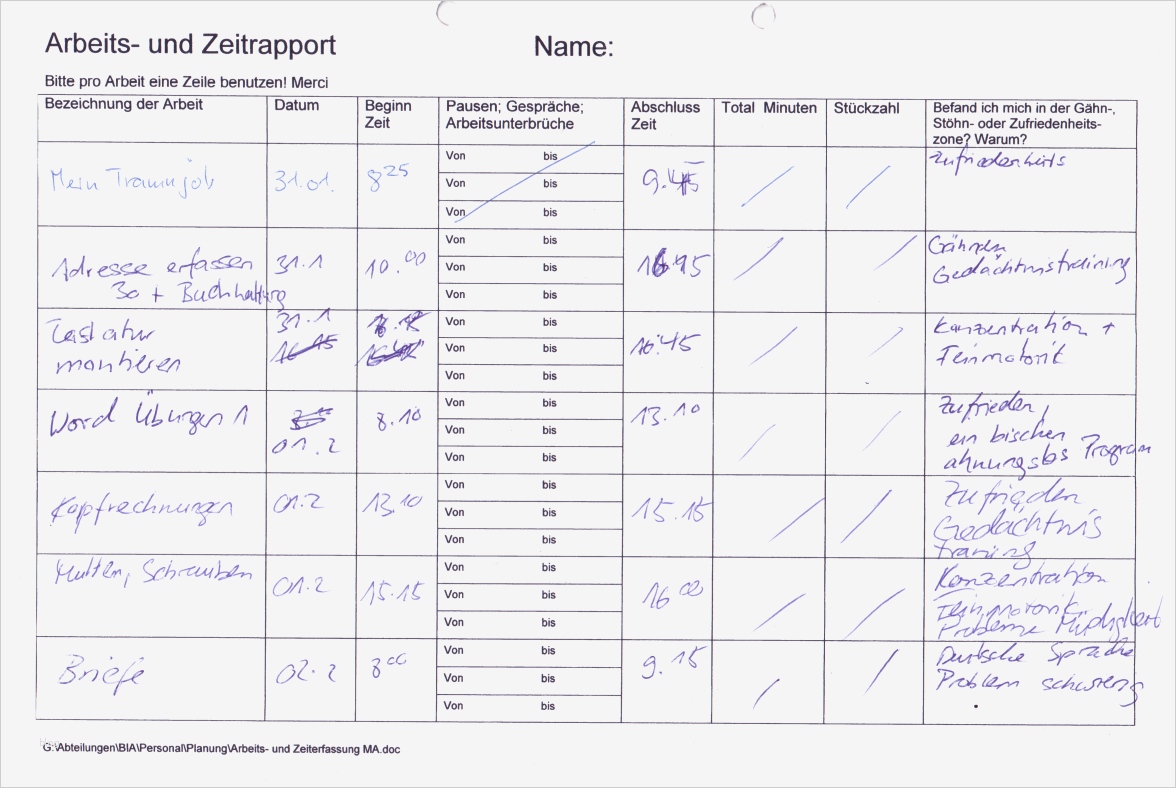 Arbeits- und Zeitrapport
Name:
Bitte pro Arbeit eine Zeile benutzen! Merci
Bezeichnung der Arbeit
Datum
Beginn
Zeit
Pausen; Gespräche;
Arbeitsunterbrüche
Abschluss
Zeit
Total Minuten
Stückzahl
Befand ich mich in der Gähn-,
Stöhn- oder Zufriedenheits-
zone? Warum?
Mein Traumjob
31.01.
8 25
Von bis
Von bis
Von bis
9.45
Zufriedenheits
Adresse erfassen
30 + Buchhaltung
31.1
10.00
Von bis
Von bis
Von bis
Gähnen
Gedächtnistraining
Tastatur
montieren
31.1
Von bis
Von bis
Von bis
16.45
Konzentration +
Feinmotorik
Word Übungen 1
01.2
8.10
Von bis
Von bis
Von bis
13.10
Zufrieden,
ein bischen
ahnungslos Program
Kopfrechnungen
01.2
13.10
Von bis
Von bis
Von bis
15.15
Zufrieden
Gedächtnis
traning
Mutten, Schrauben
01.2
15.15
Von bis
Von bis
Von bis
16 00
Konzentration
Feinmotorik
Probleme Müdigkeit
Briefe
02.2
8 00
Von bis
Von bis
Von bis
9.15
Deutsche Sprache
Problem
G:\Abteilungen\BIA\Personal\Planung\Arbeits- und Zeiterfassung MA.doc